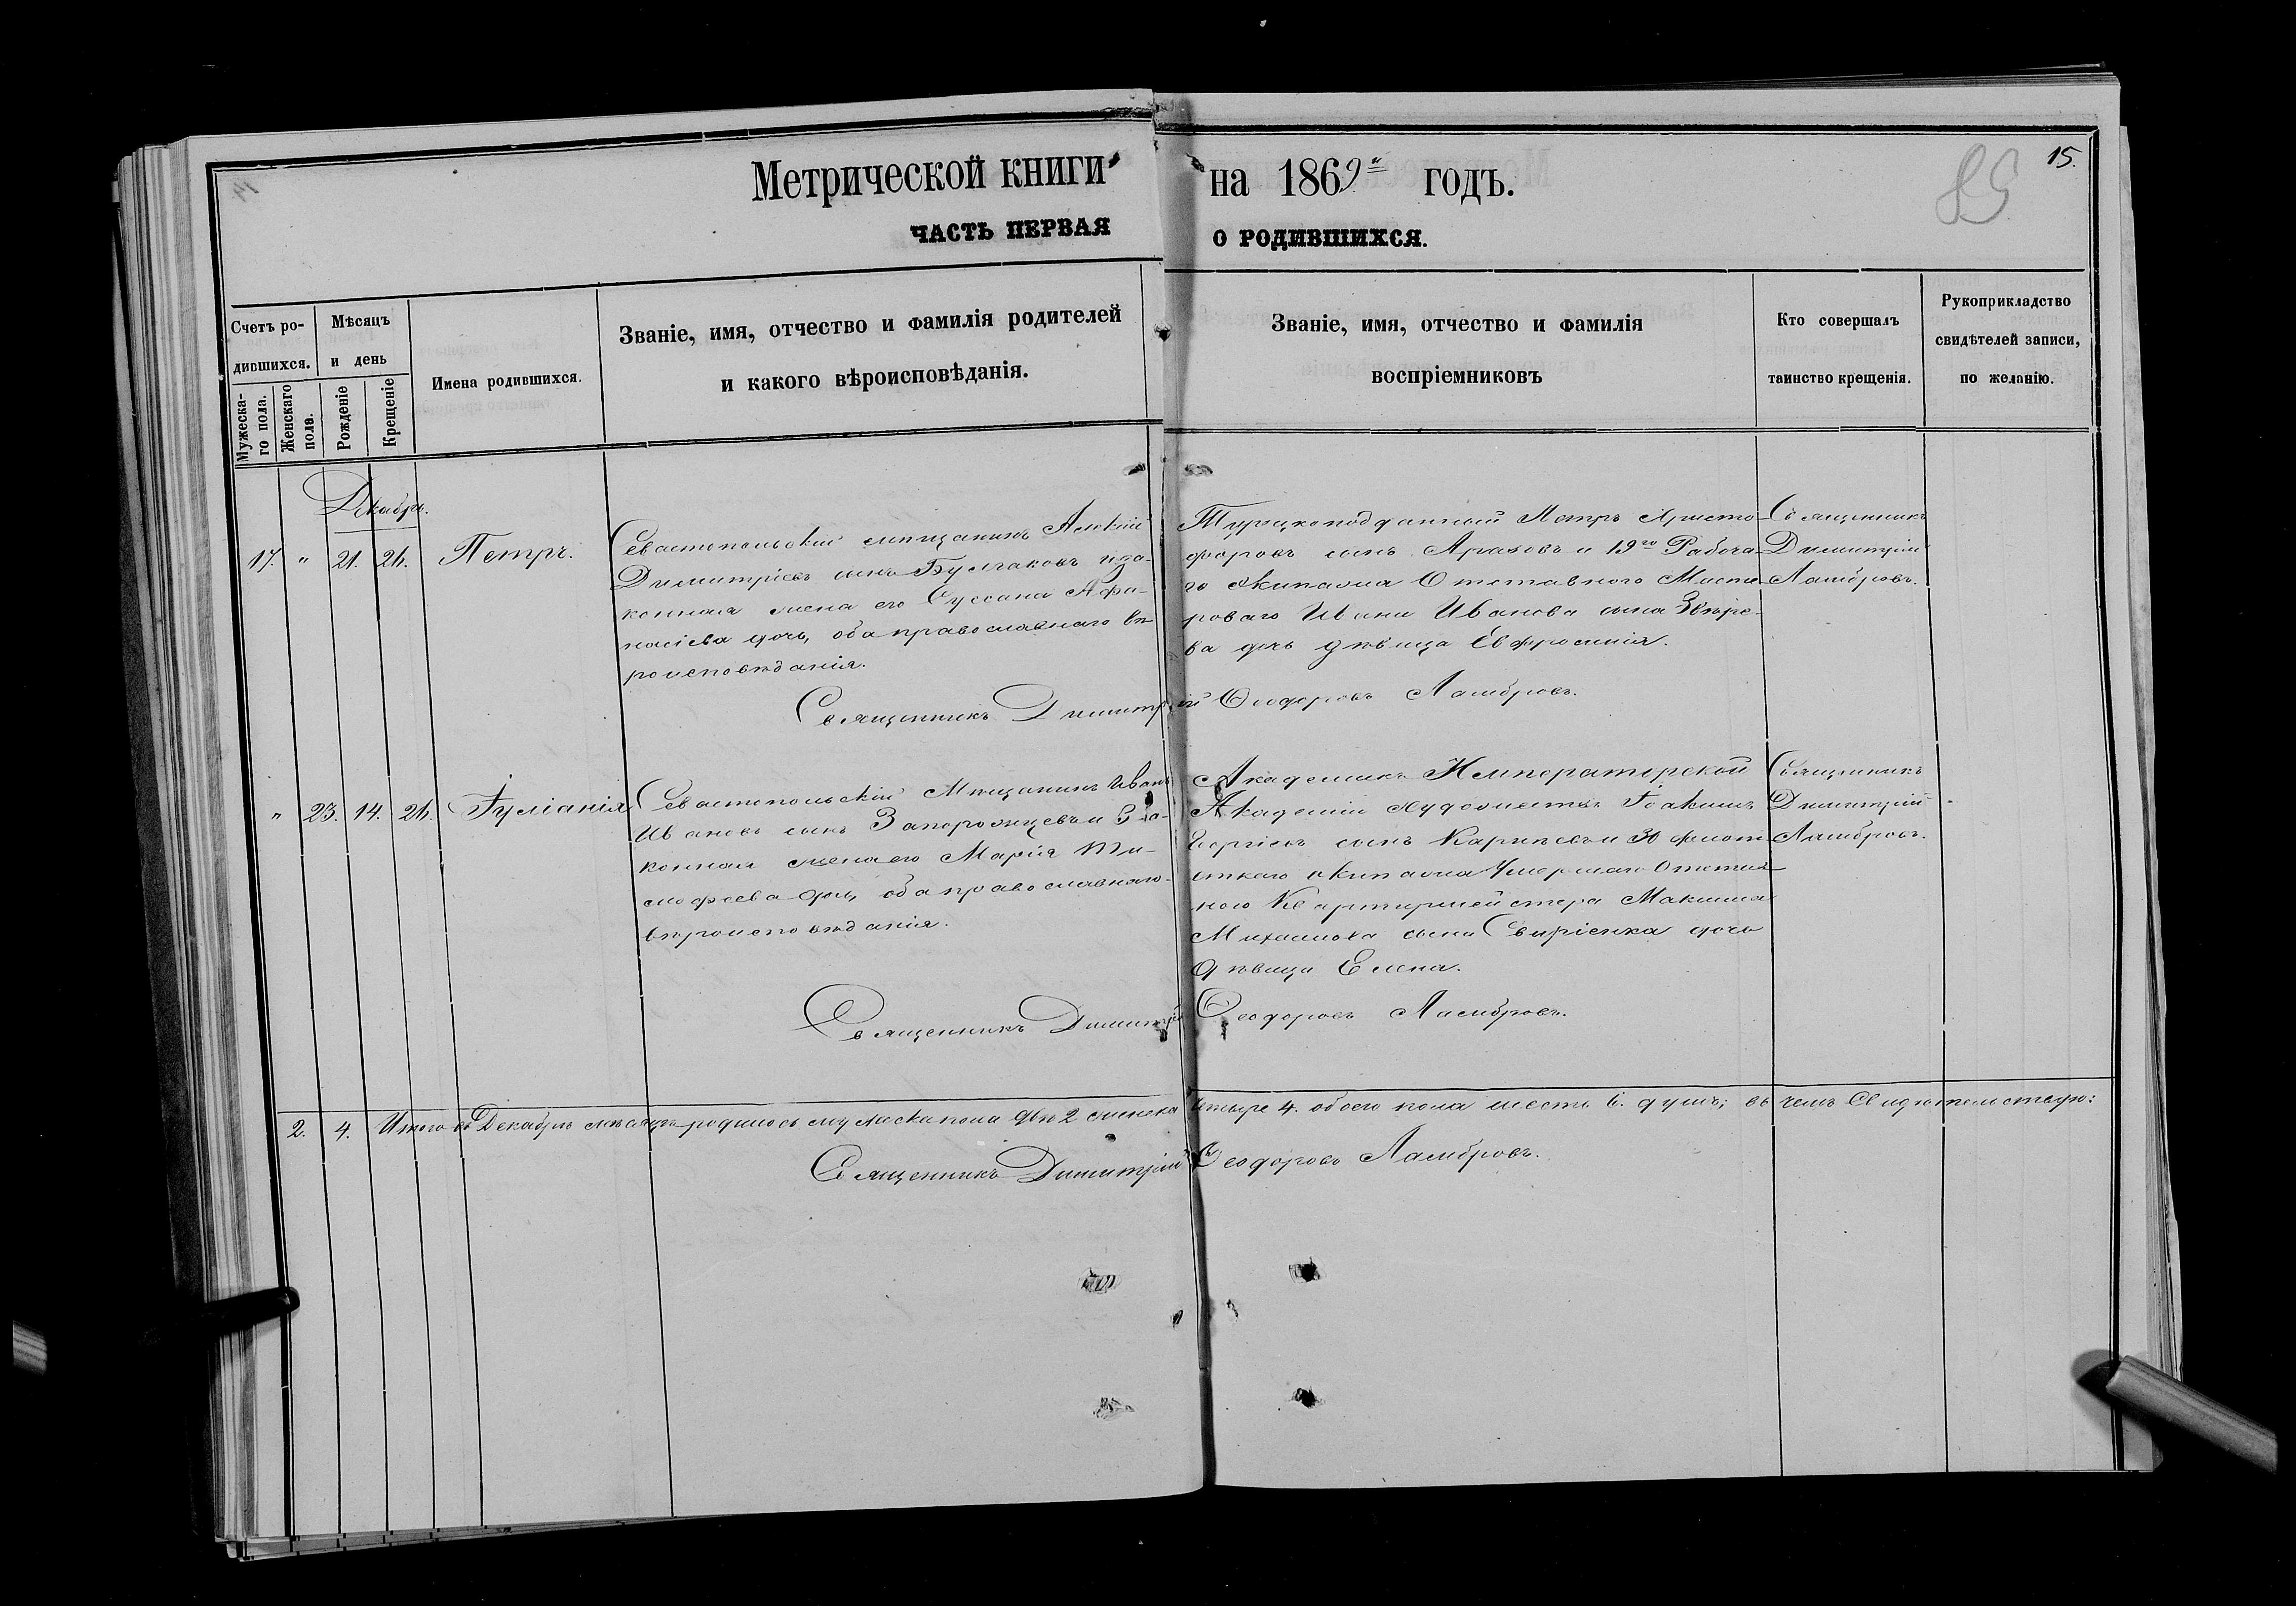 Метрической книги на 1869й годъ.
15.
85
ЧАСТЬ ПЕРВАЯ О РОДИВШИХСЯ.
Счетъ ро-
дившихся.
Мужеска-
го пола.
Женскаго
пола.
Мѣсяцъ
и день
Рожденіе
Крещеніе
Имена родившихся.
Званіе, имя, отчество и фамилія родителей
и какого вѣроисповѣданія.
Званіе, имя, отчество и фамилія
воспріемниковъ
Кто совершалъ
таинство крещенія.
Рукоприкладство
свидѣтелей записи,
по желанію.
Декабрь.
17. " 21. 26. Петръ.
Севастопольскій мѣщанинъ Алексій
Димитріевъ сынъ Булгаковъ и за-
конная жена его Сусана Афа-
насіева дочь, оба православнаго вѣ-
роисповѣданія.
Турецкоподданный Петръ Христо-
форовъ сынъ Араховъ и 19го Рабоча-
го экипажа Отставного Масте-
роваго Ивана Иванова сына Звѣре-
ва дочь дѣвица Евфросинія.
Священникъ
Димитрій
Ламбровъ.
Священникъ Димитрій Ѳеодоровъ Ламбровъ.
" 23. 14. 26. Іуліанія
Севастопольскій Мѣщанинъ Иванъ
Ивановъ сынъ Запорожцевъ и За-
конная жена его Марія Ти-
мофеева дочь, оба православнаго
вѣроисповѣданія.
Академикъ Императорской
Академіи Художествъ Іоакимъ
Георгіевъ сынъ и 30 флот-
скаго экипажа Умершаго Отстав-
ного Квартирмейстера Максима
Михайлова сына Свиріенка дочь
дѣвица Елена.
Священникъ
Димитрій
Ламбровъ.
Священникъ Димитрій Ѳеодоровъ Ламбровъ.
2. 4. Итого въ Декабрѣ мѣсяцѣ родилось мужеска пола два 2 женска четыре 4. обоего пола шесть 6. душъ; въ чемъ Свидѣтельствую:
Священникъ Димитрій Ѳеодоровъ Ламбровъ.